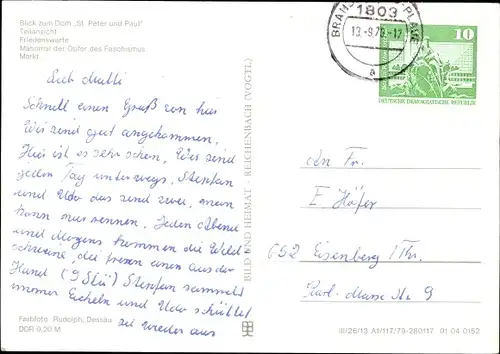 Blick zum Dom „St. Peter und Paul"
Teilansicht
Friedenswarte
Mahnmal der Opfer des Faschismus
Markt
Lieb Mutti
Schnell einen Gruß von hier
Wir sind gut angekommen.
Hier ist es sehr schön. Wir sind
jeden Tag unterwegs. Stephan
und Udo das sind zwei, man
kann nur rennen. Jeden Abend
und Morgens kommen die Wild
schweine, die fressen einen aus der
Hand (9 Stü) Stephan sammelt
immer Eicheln und Udo schüttet
sie wieder aus
Farbfoto: Rudolph, Dessau
DDR 0,20 M
BILD UND HEIMAT REICHENBACH (VOGTL)
1803
a
10
DEUTSCHE DEMOKRATISCHE REPUBLIK
An Fr.
E. Höfer
652 Eisenberg / Thr.
Karl-Marx-Str. 9
III/26/13 A1/117/79-280117 01 04 0152